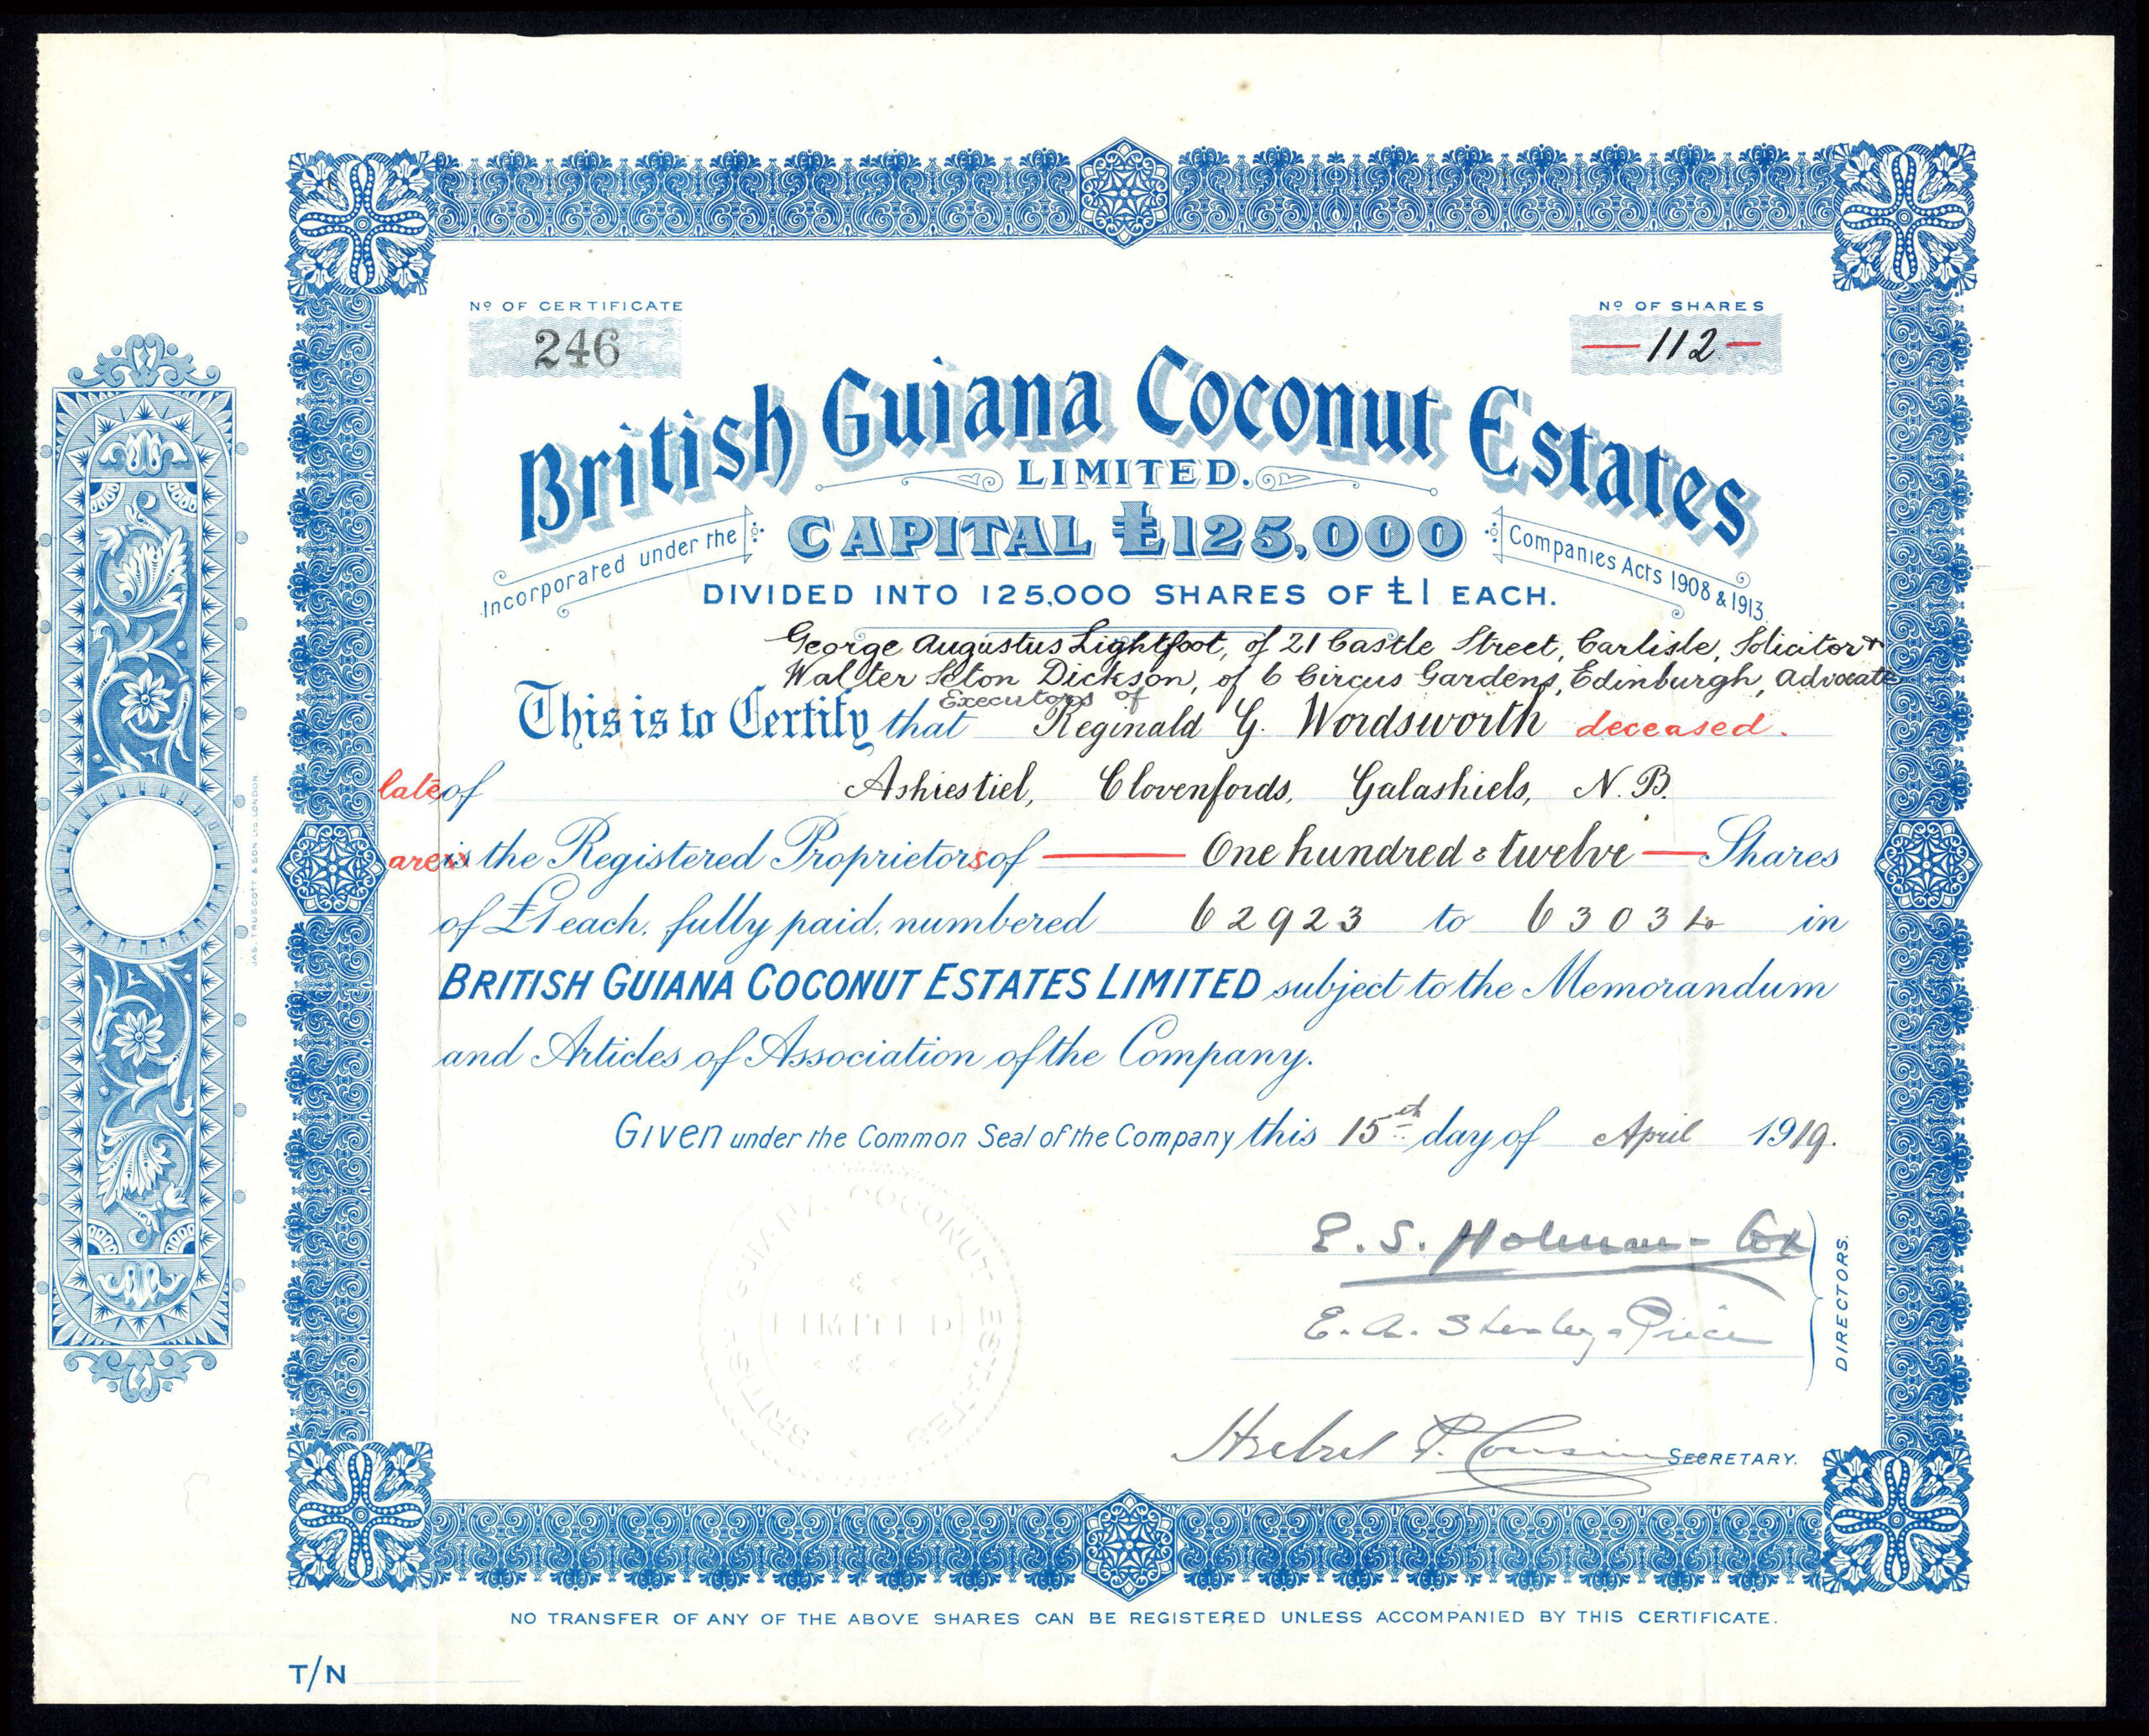 Nº OF CERTIFICATE
246
Nº OF SHARES
112
British Guiana Coconut Estates
LIMITED.
Incorporated under the
CAPITAL £125,000
Companies Acts 1908 & 1913
DIVIDED INTO 125,000 SHARES OF £1 EACH.
George Augustus Lightfoot, of 21 Castle Street, Carlisle, Solicitor &
Walter Seton Dickson, of 6 Circus Gardens, Edinburgh, Advocate
Executors of
This is to Certify that Reginald G. Wordsworth deceased.
late of Ashiestiel, Clovenfords, Galashiels, N.B.
are is the Registered Proprietors of One hundred & twelve Shares
of £1 each, fully paid, numbered 62923 to 63034 in
BRITISH GUIANA COCONUT ESTATES LIMITED subject to the Memorandum
and Articles of Association of the Company.
Given under the Common Seal of the Company this 15th day of April 1919.
BRITISH GUIANA COCONUT ESTATES
LIMITED
E. S. Holman-Cox
E. A. Stanley-Price
DIRECTORS.
P. SECRETARY.
NO TRANSFER OF ANY OF THE ABOVE SHARES CAN BE REGISTERED UNLESS ACCOMPANIED BY THIS CERTIFICATE.
T/N
JAS. TRUSCOTT & SON LTD LONDON.